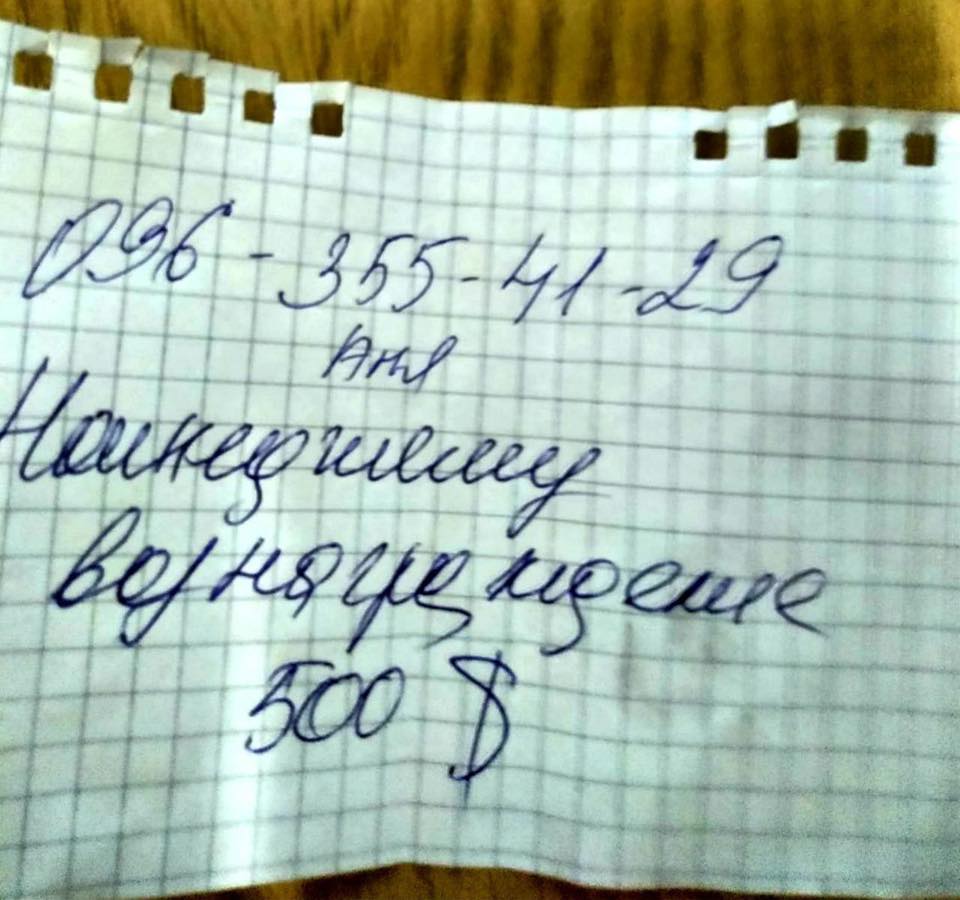 096-355-41-29
Аня
Нашедшему
вознаграждение
500 $